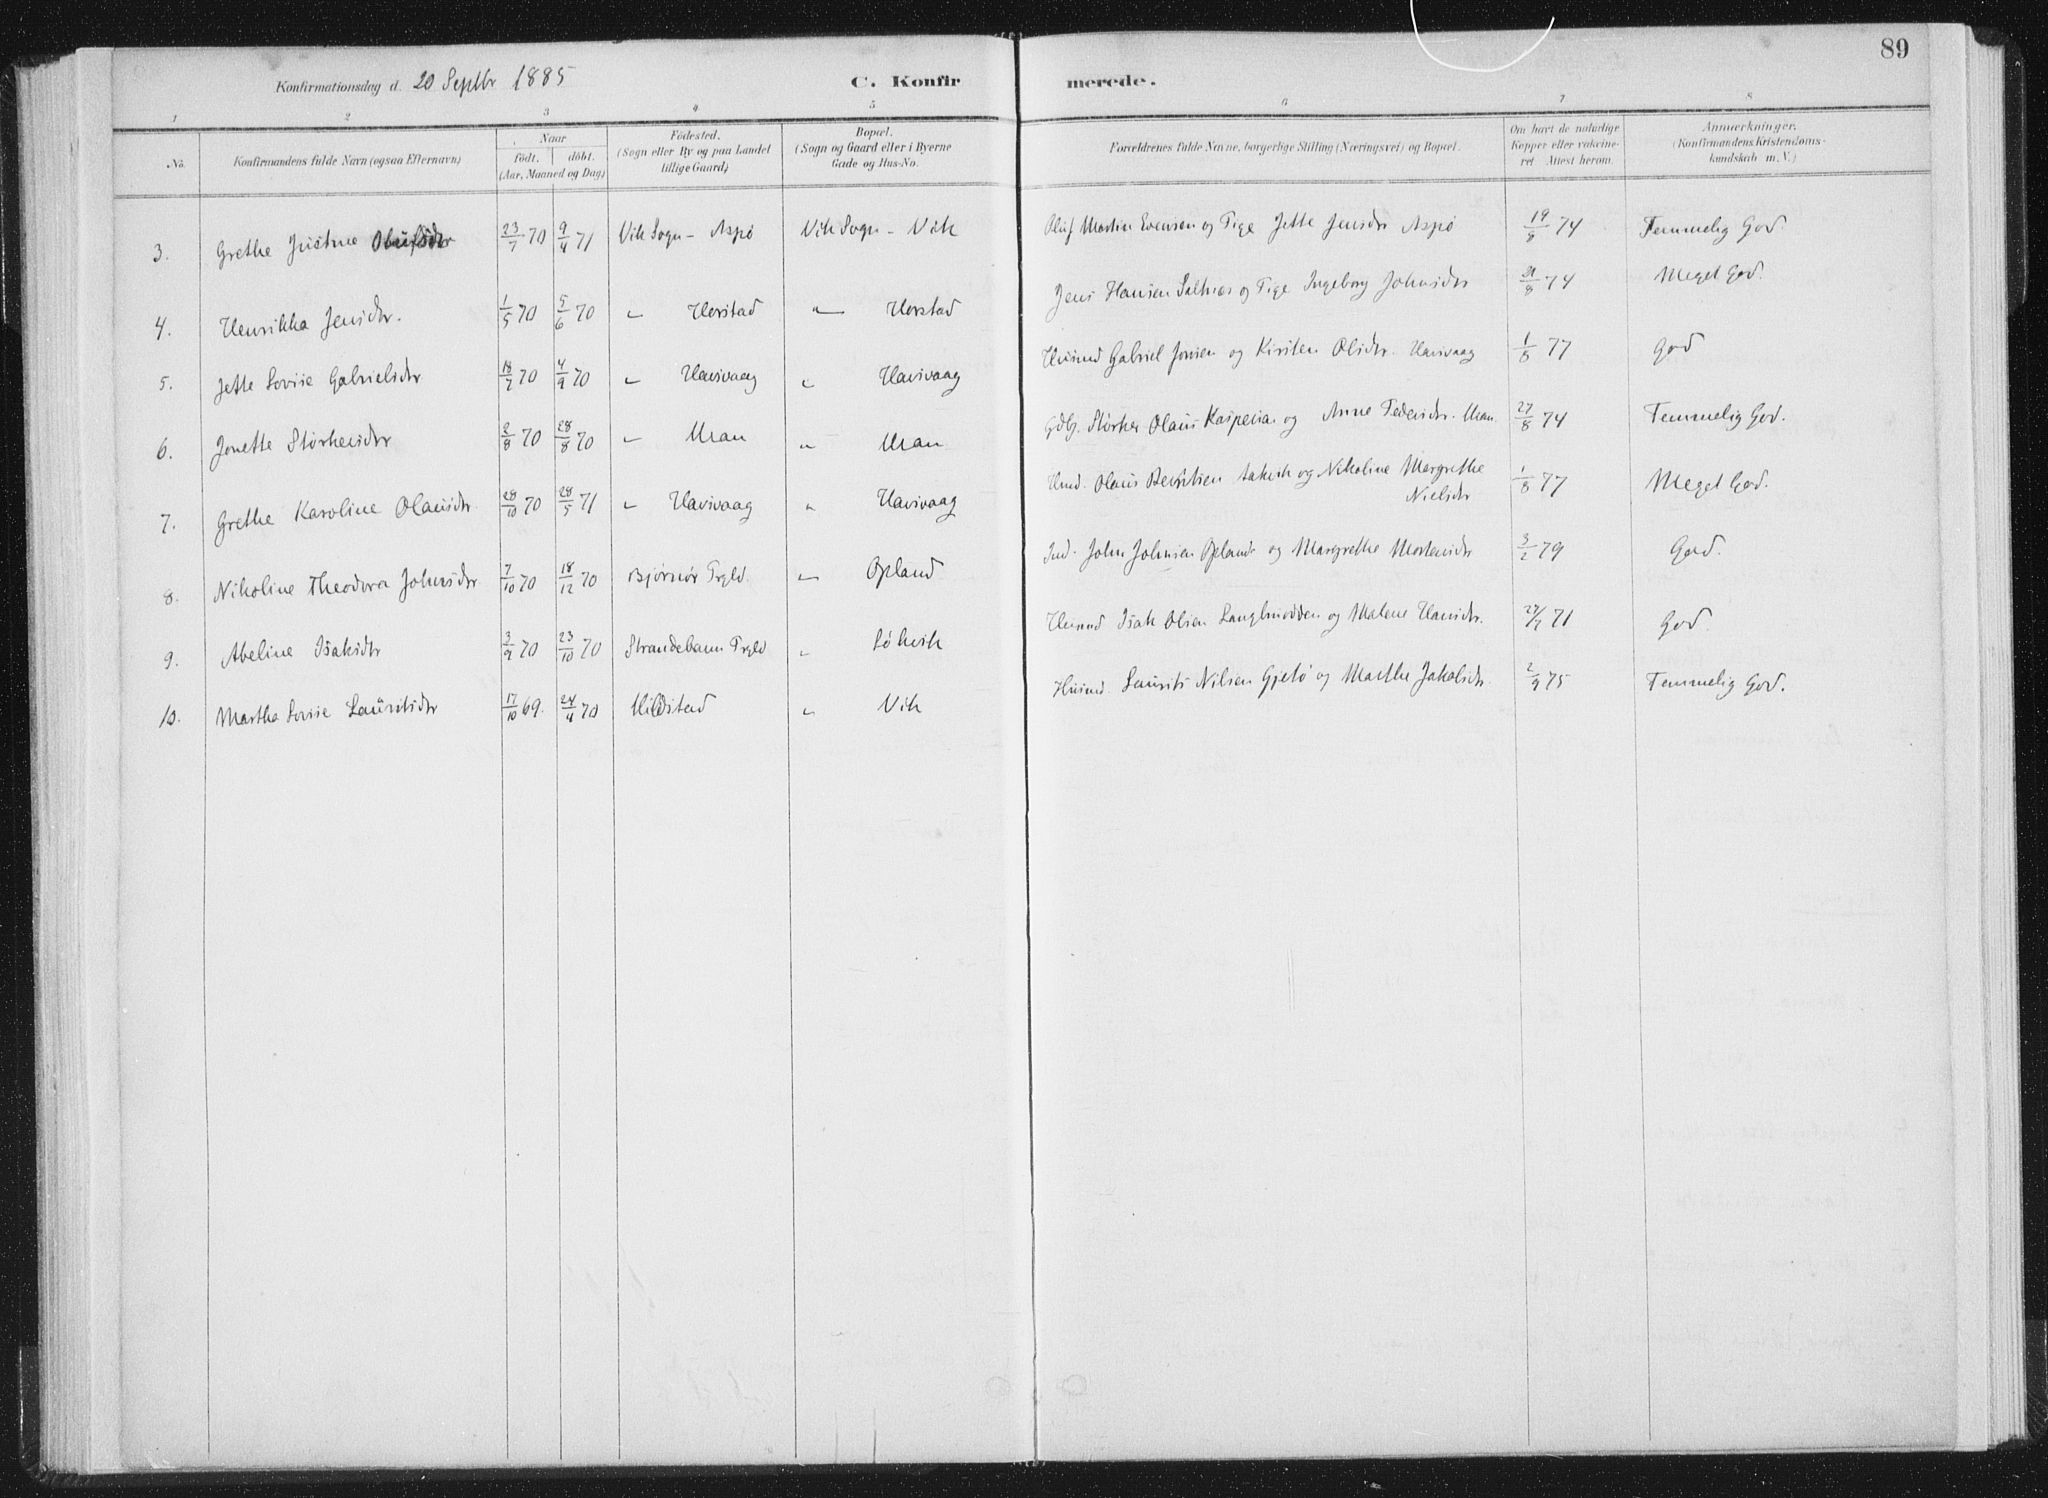 89
Konfirmationsdag d. 20 Septbr 1885 C. Konfirmerede.
1 2 3 4 5 6 7 8
No. Konfirmandens fulde Navn (ogsaa Efternavn) Naar födt. döbt. (Aar, Maaned og Dag) Födested. (Sogn eller By og paa Landet tillige Gaard) Bopæl. (Sogn og Gaard eller i Byerne Gade og Hus-No. Forældrenes fulde Navne, borgerlige Stilling (Næringsvei) og Bopæl. Om havt de naturlige Kopper eller vakcineret Attest herom. Anmærkninger. (Konfirmandens Kristendomskundskab m. V.)
3. Grethe Justine Olufsdtr 23/7 70 9/4 71 Vik Sogn - Aspö Vik Sogn - Vik Oluf Martin Evensen og Pige Jette Jensdtr Aspö 19/8 74 Temmelig God.
4. Henrikka Jensdtr. 1/5 70 5/6 70 " Horstad " Horstad Jens Hansen Saltnæs og Pige Ingeborg Johnsdtr 21/8 74 Meget God.
5. Jette Lovise Gabrielsdtr 18/7 70 4/9 70 " Havsvaag " Havsvaag Husmd Gabriel Jonsen og Kirsten Olsdtr. Havsvaag 1/8 77 God
6. Jonette Størkersdtr 2/8 70 28/8 70 " Uran " Uran Gdbr. Størker Olaus Kaspersen og Anne Pedersdtr. Uran 27/8 74 Temmelig God.
7. Grethe Karoline Olausdtr. 28/10 70 28/5 71 " Havsvaag " Havsvaag Hmd. Olaus Berntsen og Nikoline Margrethe Nielsdtr 1/8 77 Meget God.
8. Nikoline Theodora Johnsdtr 7/10 70 18/12 70 Bjørnör Prgld. " Opland Ind. John Johnsen Opland og Margrethe Mortensdtr 3/2 79 God.
9. Abeline Isaksdtr 3/9 70 23/10 70 Strandebarm Prgld " Sökvik Husmd Isak Olsen Langlmodden og Malene Hansdtr. 27/7 71 God.
10. Martha Lovise Lauritsdtr 17/10 69. 24/4 70 Hildstad " Vik Husmd. Laurits Nilsen Gjetö og Marthe Jakobsdtr. 2/9 75 Temmelig God.